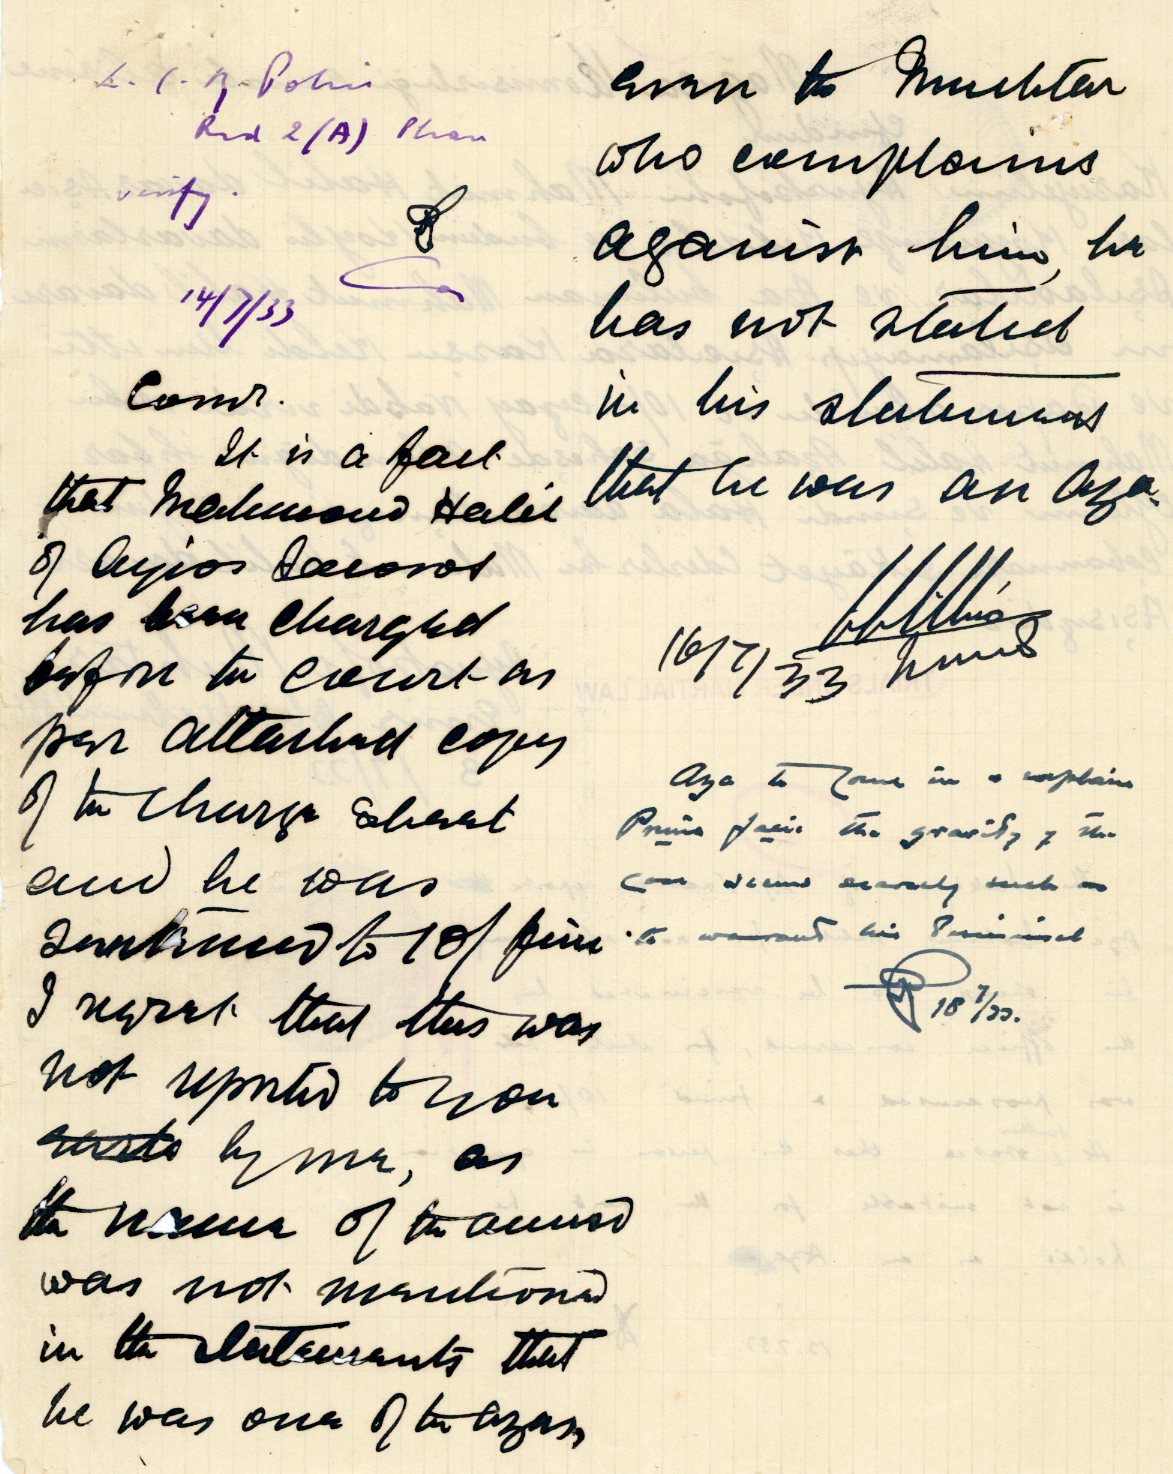 L. C. A. Police
Red 2(A) Please
verify.
14/7/33
Comr.
It is a fact
that Mahmoud Halil
of Ayios
has been charged
before the court as
per attached copy
of the charge sheet
and he was
sentenced to 10/ fine.
I regret that this was
not reported to you
by me, as
the name of the accused
was not mentioned
in the statements that
he was one of the azas,
even to Muchtar
who complains
against him, he
has not stated
in his statement
that he was an Aza.
16/7/33
Aza to come in & explain
Prima facie the gravity of the
case seems scarcely such as
to warrant his
18 7/33.